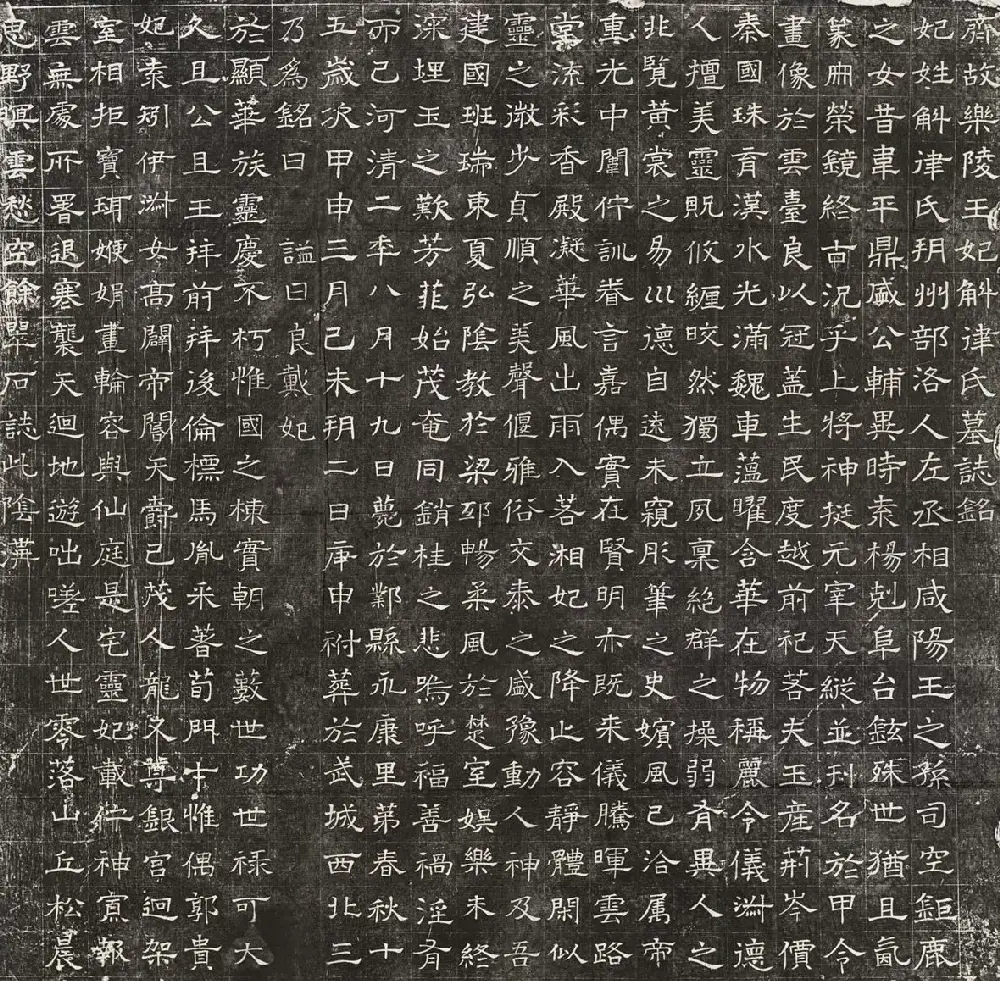 齊故樂陵王妃斛律氏墓誌銘
妃姓斛律氏朔州部洛人左丞相咸陽王之孫司空鉅鹿
之女昔韋平鼎盛公輔異時袁楊剋阜台鉉殊世猶且氣
篆冊榮鏡終古況乎上將神挺元宰天縱並刊名於甲令
畫像於雲臺良以冠蓋生民度越前祀若夫玉產荊岑價
秦國珠育漢水光滿魏車蘊曜含華在物稱麗令儀淑德
人擅美靈貺攸纏皎然獨立夙稟絕群之操弱有異人之
兆覽黃裳之易巛德自遠未窺彤筆之史嬪風已洽屬帝
重光中闈佇訓眷言嘉偶實在賢明亦既来儀騰暉雲路
棠流彩香殿凝華風出雨入若湘妃之降止容靜體閑似
靈之微步貞順之美聲偃雅俗交泰之盛豫動人神及吾
建國班瑞東夏弘陰教於梁邳暢柔風於楚室娛樂未終
深埋玉之歎芳菲始茂奄同銷桂之悲嗚呼福善禍淫有
而已河清二年八月十九日薨於鄴縣永康里第春秋十
五歲次甲申三月己未朔二日庚申祔葬於武城西北三
乃為銘曰 諡曰良戴妃
於顯華族靈慶不朽惟國之棟實朝之藪世功世祿可大
久且公且王拜前拜後倫標馬胤采著荀門才惟偶郭貴
妃袁劉伊淑女高闢帝閽天爵已茂人龍又尊銀宮迥架
室相拒寶珥嬋娟畫輪容與仙庭是宅靈妃載佇神寡報
雲無處所署退寒襲天迴地遊咄嗟人世零落山丘松晨
思野暝雲愁空餘翠石誌此陰